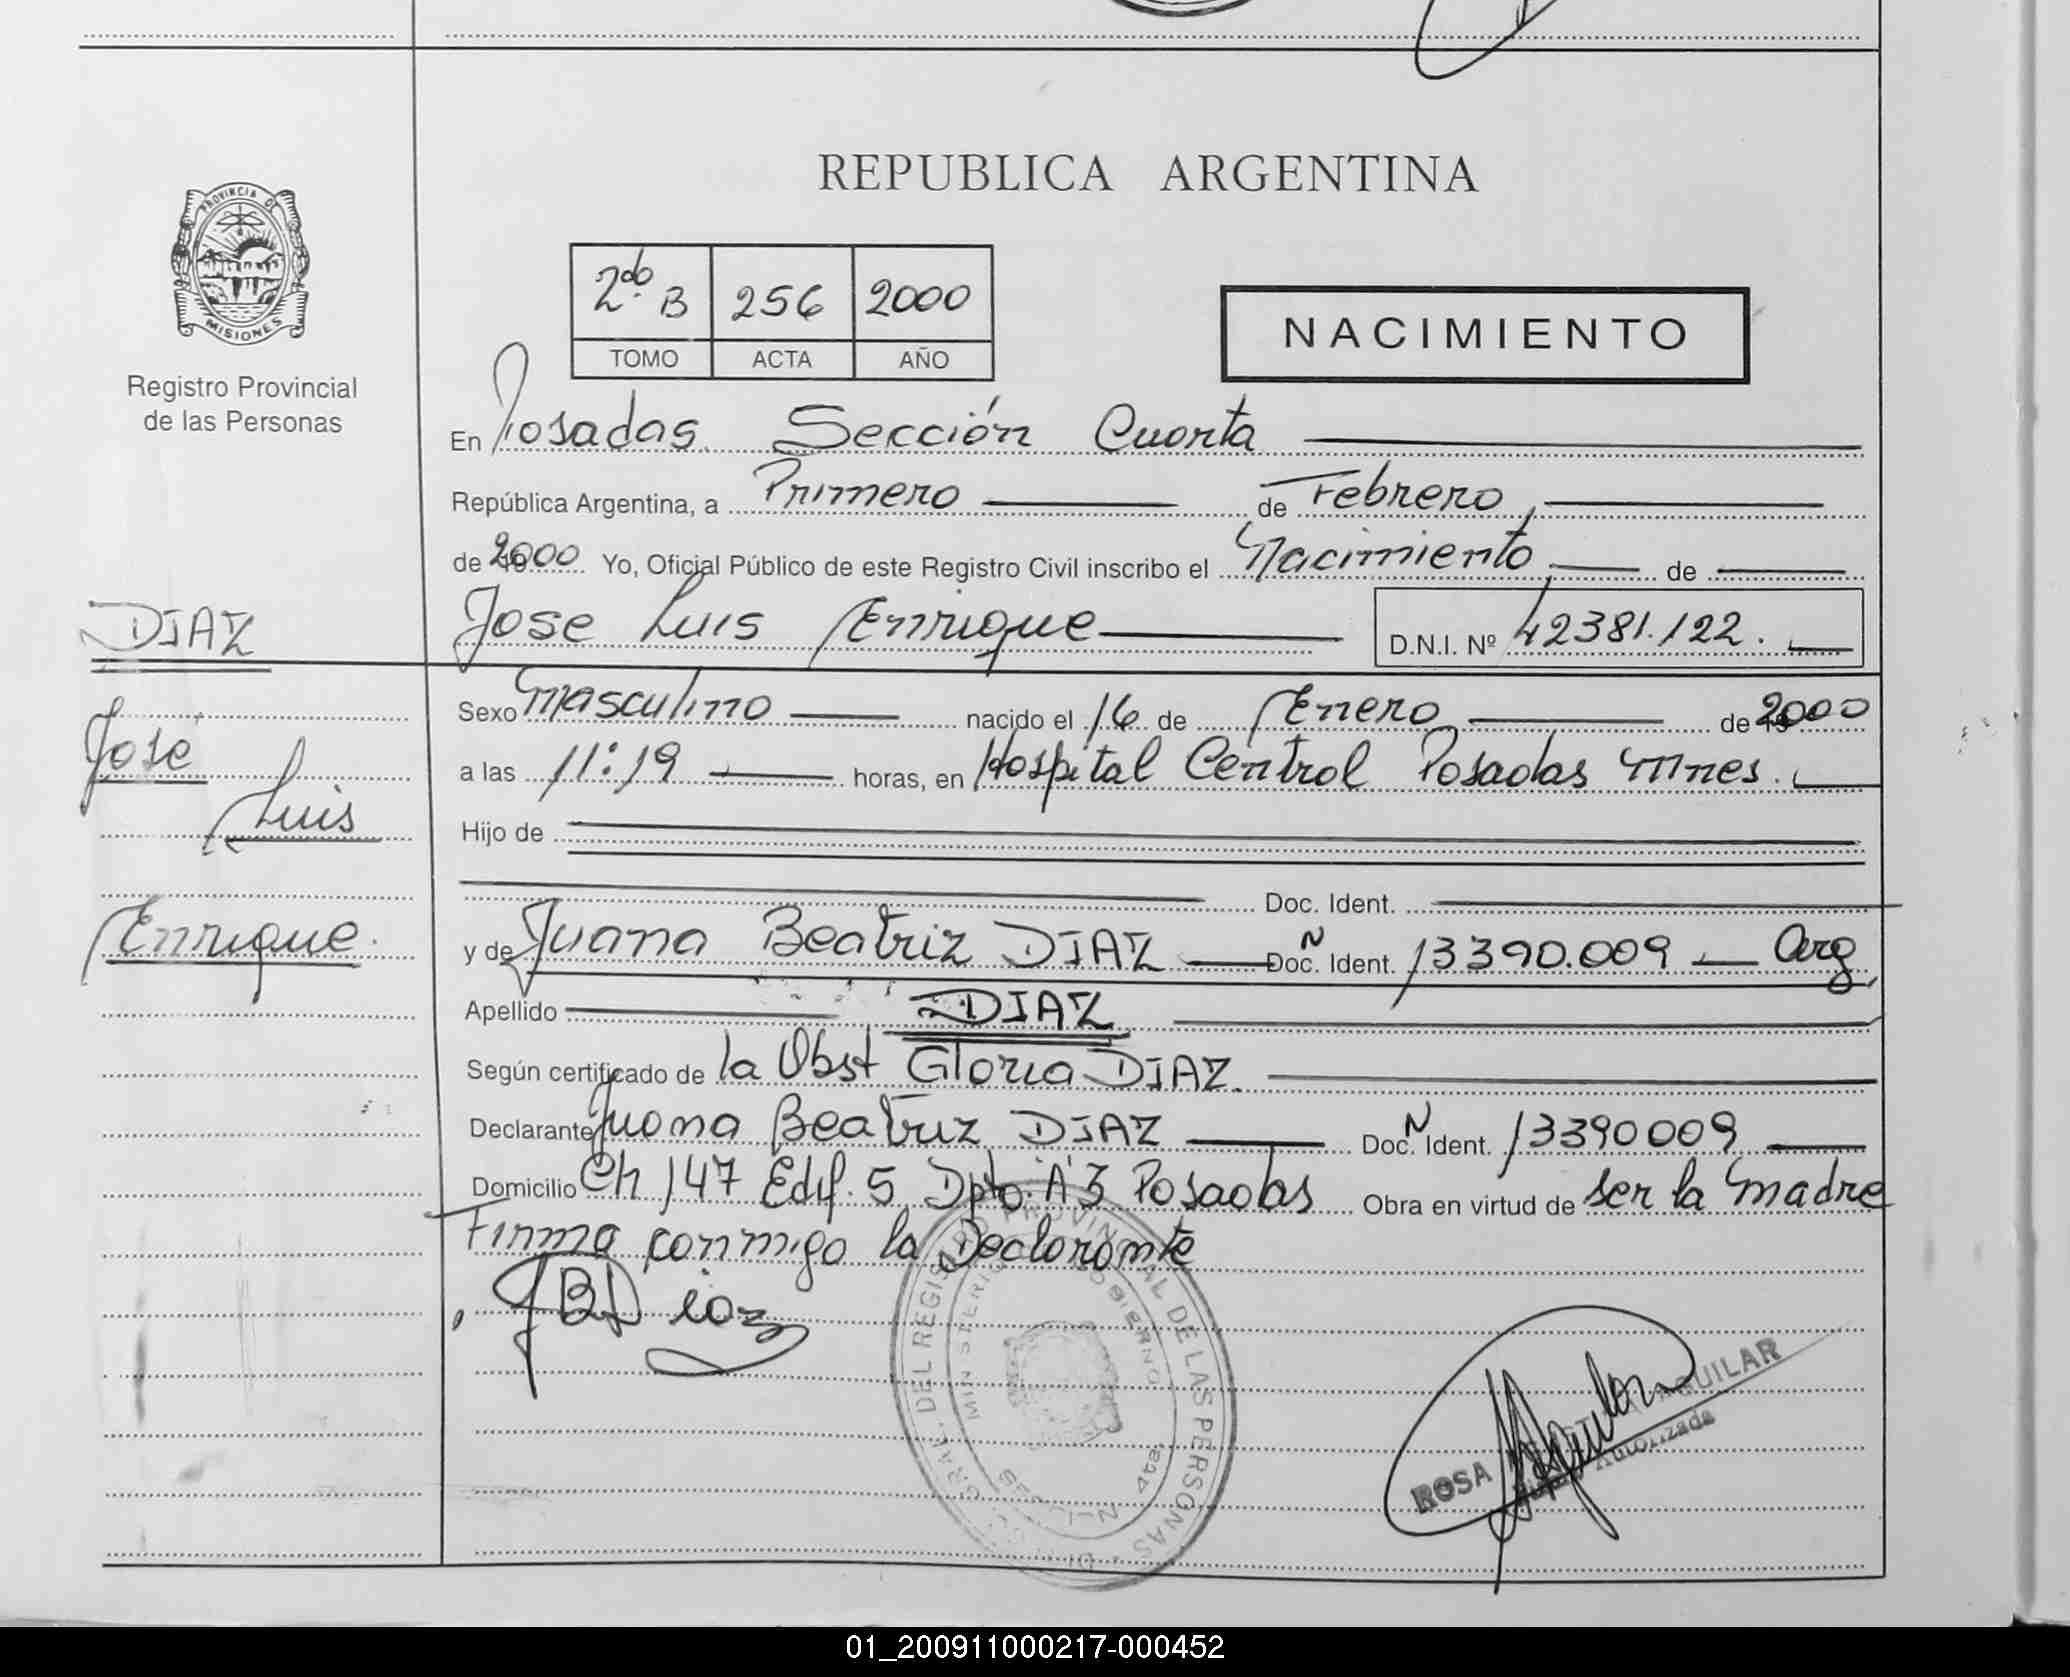 REPUBLICA ARGENTINA
PROVINCIA DE
MISIONES
Registro Provincial
de las Personas
2do B 256 2000
TOMO ACTA AÑO
NACIMIENTO
En Posadas Sección Cuarta
República Argentina, a Primero de Febrero
de 2000 Yo, Oficial Público de este Registro Civil inscribo el Nacimiento de
DIAZ
Jose Luis Enrique D.N.I. Nº 42381.122.
Sexo Masculino nacido el 16 de Enero de 2000
José
a las 11:19 horas, en Hospital Central Posadas Mnes.
Luis
Hijo de
Doc. Ident.
Enrique.
y de Juana Beatriz DIAZ Doc. N Ident. 13390.009 Arg.
Apellido DIAZ
Según certificado de la Obst Gloria DIAZ.
Declarante Juana Beatriz DIAZ Doc. N Ident. 13390009
Domicilio Ch 147 Edif. 5 Dpto. A 3 Posadas Obra en virtud de ser la madre
Firma conmigo la Declarante
JBDiaz
DEL REGISTRO PROVINCIAL DE LAS PERSONAS
MINISTERIO GOBIERNO
SECCION 4ta.
Aguilar
ROSA AGUILAR
Autorizada
01_200911000217-000452